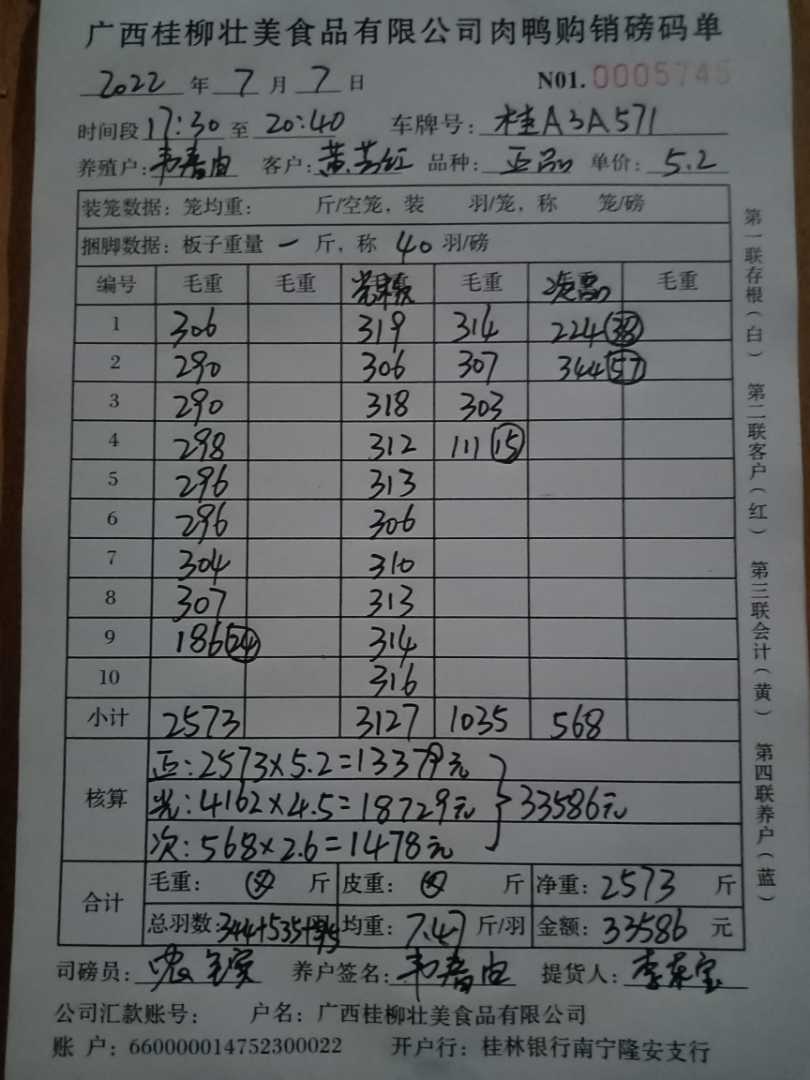 广西桂柳壮美食品有限公司肉鸭购销磅码单
2022 年 7 月 7 日 N01. 0005745
时间段 17:30 至 20:40 车牌号: 桂A3A571
养殖户: 韦春由 客户: 黄 红 品种: 正品 单价: 5.2
装笼数据: 笼均重: 斤/空笼, 装 羽/笼, 称 笼/磅
捆脚数据: 板子重量 一 斤, 称 40 羽/磅
编号 毛重 毛重 毛重 次品 毛重
1 306 319 314 224 (38)
2 290 306 307 344 (57)
3 290 318 303
4 298 312 111 (15)
5 296 313
6 296 306
7 304 310
8 307 313
9 186 (24) 314
10 316
小计 2573 3127 1035 568
核算
正:2573×5.2=13379元
光:4162×4.5=18729元 33586元
次:568×2.6=1478元
合计
毛重: 斤 皮重: 斤 净重: 2573 斤
总羽数: 344+535+95 均重: 7.47 斤/羽 金额: 33586 元
司磅员: 养户签名: 韦春由 提货人: 李宝
公司汇款账号: 户名: 广西桂柳壮美食品有限公司
账 户: 660000014752300022 开户行: 桂林银行南宁隆安支行
第一联存根(白) 第二联客户(红) 第三联会计(黄) 第四联养户(蓝)